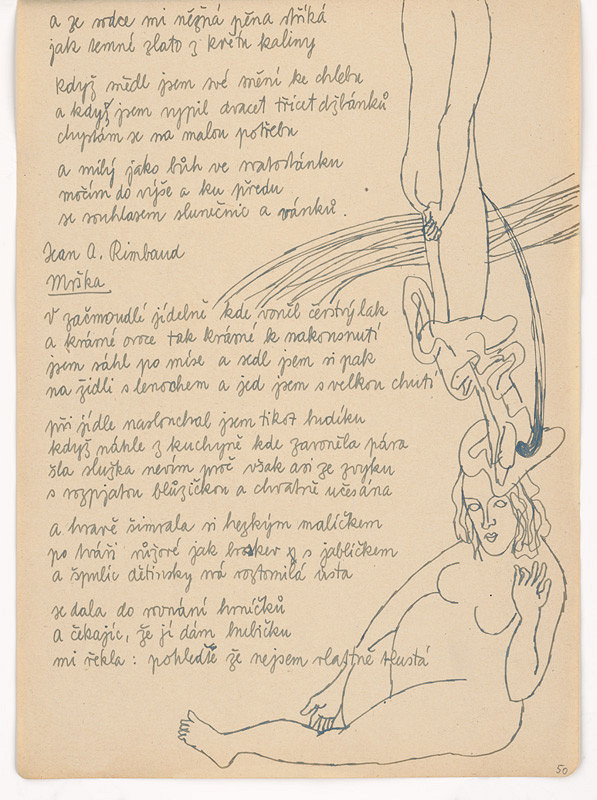 a ze srdce mi něžná pěna stříká
jak temné zlato z květu kaliny
když snědl jsem své mění ke chlebu
a když jsem vypil dvacet třicet džbánků
chystám se na malou potřebu
a milý jako bůh ve
močím do výše a ku předu
se souhlasem slunečnic a vánků.
Jean A. Rimbaud
Mrška
V začmoudlé jídelně kde voněl čerstvý lak
a krásné ovoce tak krásné k nakousnutí
jsem sáhl po míse a sedl jsem si pak
na židli s lenochem a jed jsem s velkou chutí
při jídle naslouchal jsem tikot hudíku
když náhle z kuchyně kde zavoněla pára
šla služka nevím proč však asi ze zvyku
s rozpjatou blůzičkou a chvatně učesána
a hravě šimrala si hezkým malíčkem
po tváři růžové jak broskev s jablíčkem
a špulíc dětinsky svá roztomilá ústa
se dala do rovnání hrníčků
a čekajíc, že jí dám hubičku
mi řekla: pohleďte že nejsem vlastně tlustá
50